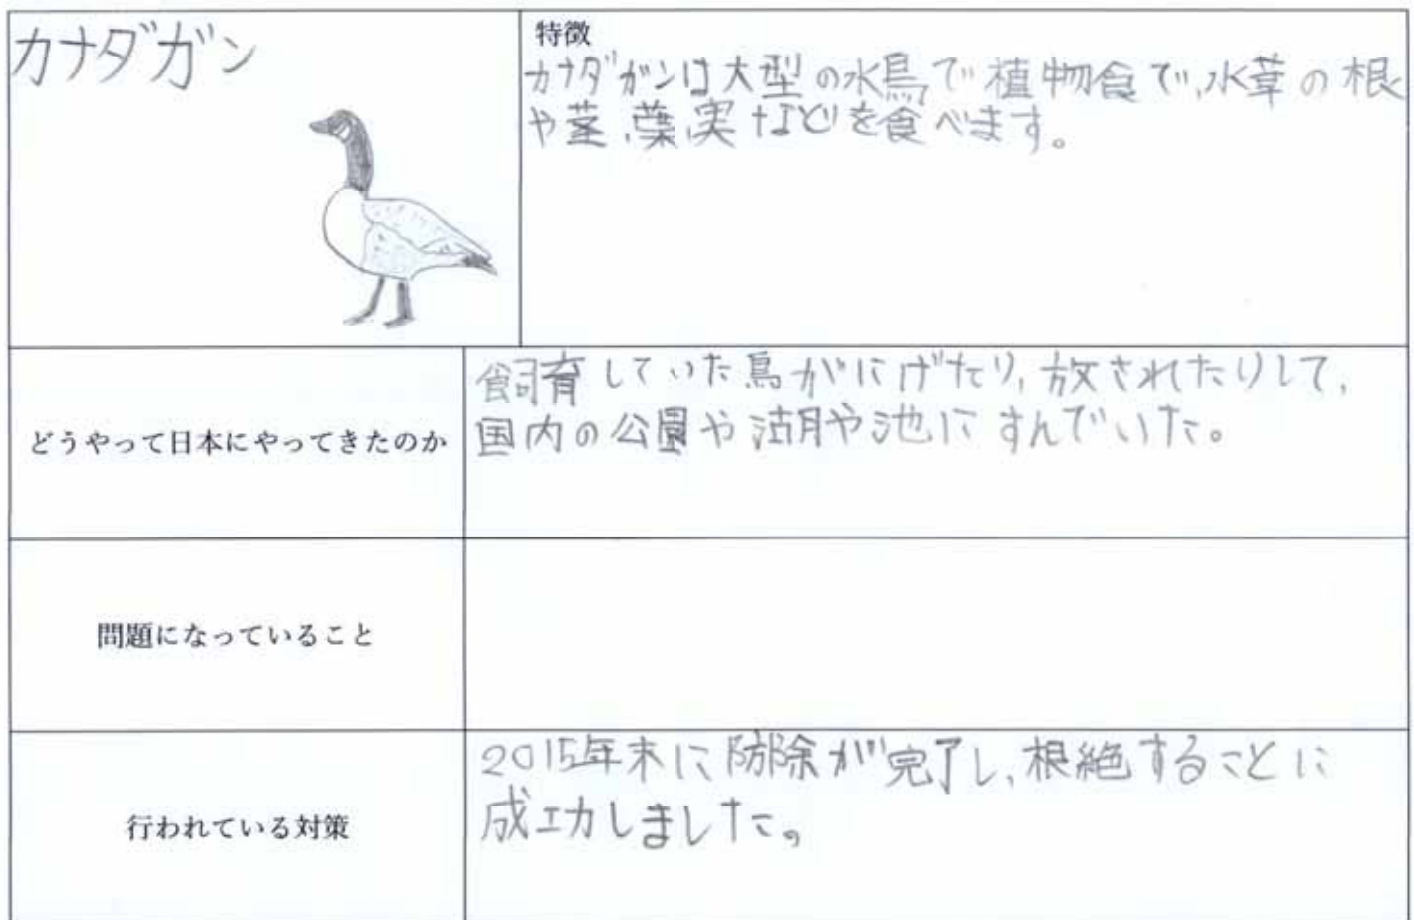 カナダガン
特徴
カナダガンは大型の水鳥で植物食で、水草の根
や茎、葉、実などを食べます。
どうやって日本にやってきたのか
飼育していた鳥がにげたり、放されたりして、
国内の公園や湖や池にすんでいた。
問題になっていること
行われている対策
2015年末に防除が完了し、根絶することに
成功しました。